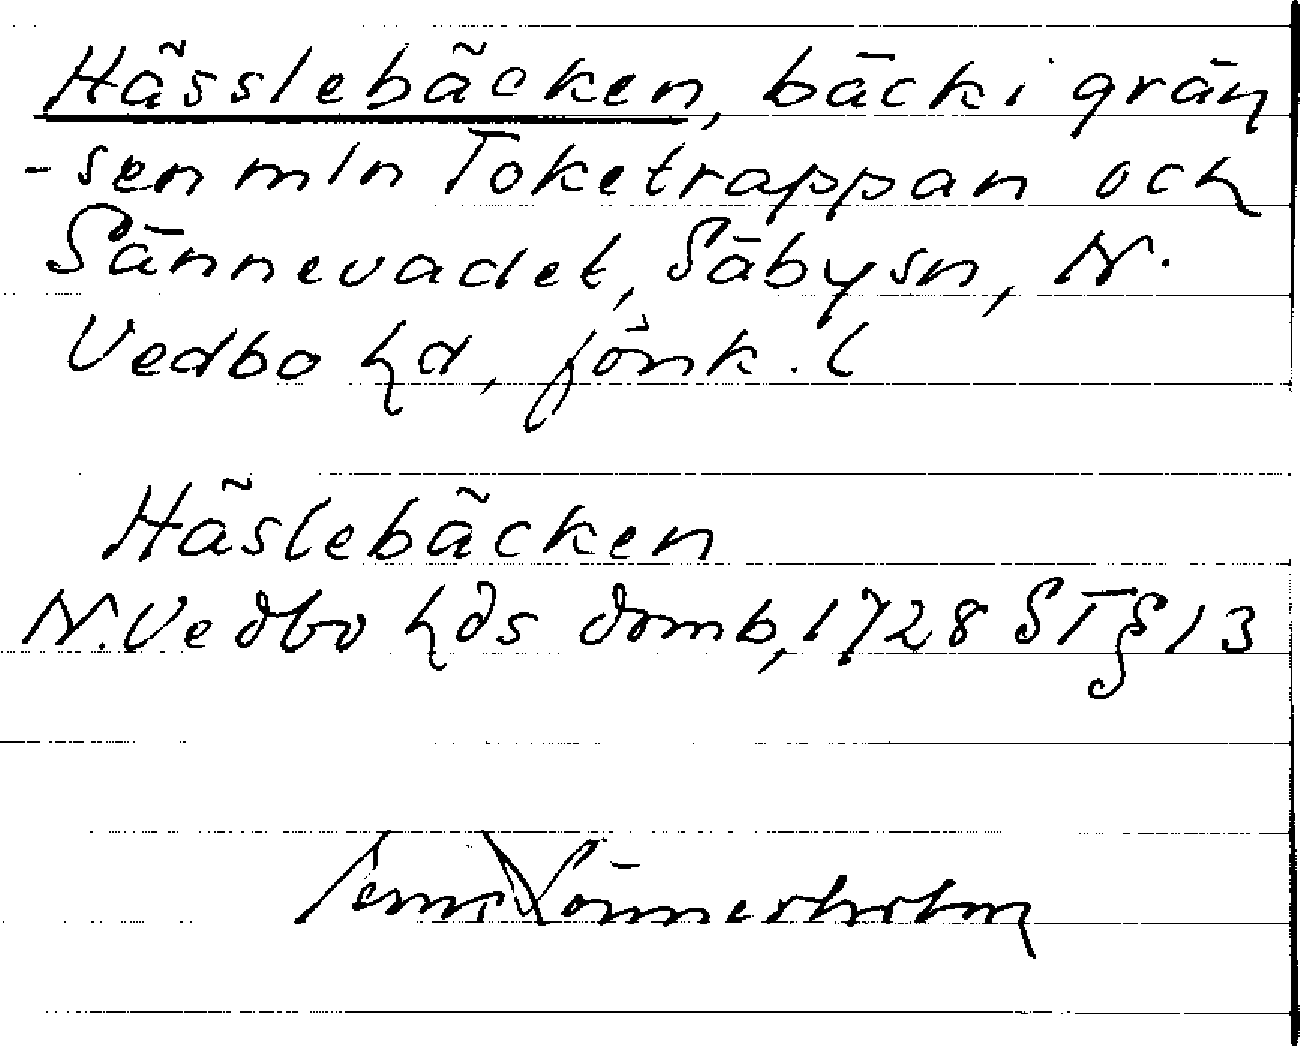 Hässlebäcken, bäck i grän
-sen mln Toketrappan och
Sännevadet, Säbysn, N.
Vedbo hd, Jönk. l
Häslebäcken
N. Vedbo hds domb, 1728 ST § 13